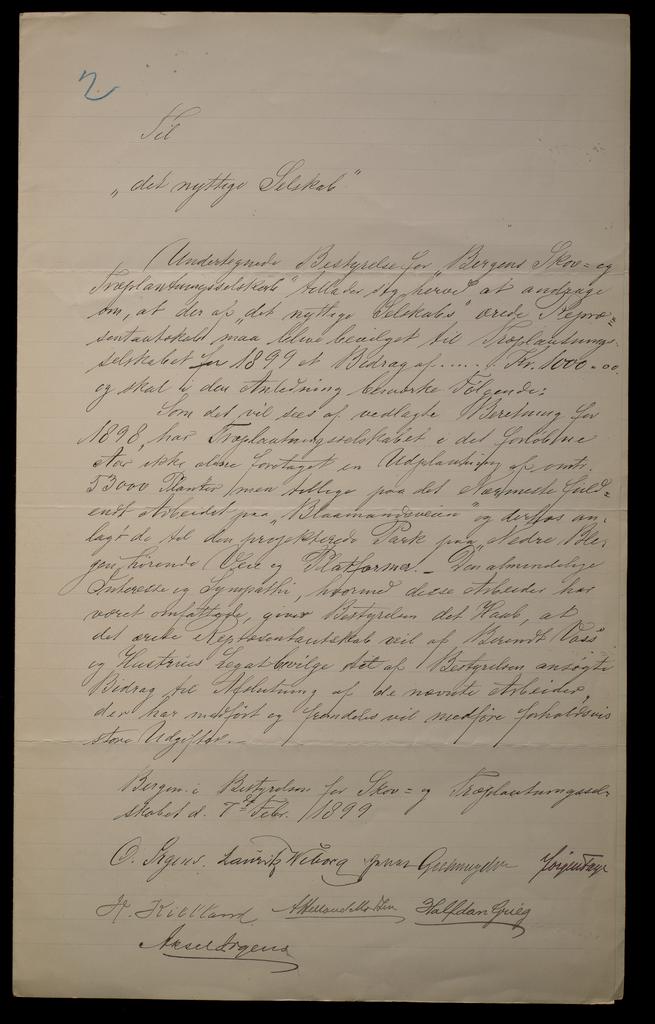 2
Til
„det nyttige Selskab"
Undertegnede Bestyrelse for „Bergens Skov= og
Træplantningsselskab" tillader sig herved at andrage
om, at der af „det nyttige Selskabs" ærede Repræ=
sentantskab maa blive bevilget til Træplantnings-
selskabet for 1899 et Bidrag af ..... Kr. 1000.00
og skal i den Anledning bemærke Følgende:
Som det vil sees af vedlagte Beretning for
1898, har Træplantningsselskabet i det forløbne
Aar ikke alene foretaget en Udplantning af omtr.
53000 Planter men tillige paa det Nærmeste fuld=
endt Arbeidet paa „Blaamandsveien" og derhos an-
lagt de til den projekterede Park paa „Nedre Ble-
gen" hørende Veie og Platformer. – Den almindelige
Interesse og Sympathi, hvormed disse Arbeider har
været omfattede, giver Bestyrelsen det Haab, at
det ærede Repræsentantskab vil af Berendt Vass
og Hustrues Legat bevilge det af Bestyrelsen ansøgte
Bidrag til Afslutning af de nævnte Arbeider,
der har medført og fremdeles vil medføre forholdsvis
store Udgifter. –
Bergen i Bestyrelsen for Skov= og Træplantningssel-
skabet d. 7de Febr. 1899
O. Irgens. Lauritz Wiborg Gjermund Jørgen Faye
H. Kielland Halfdan Grieg
Aksel Irgens